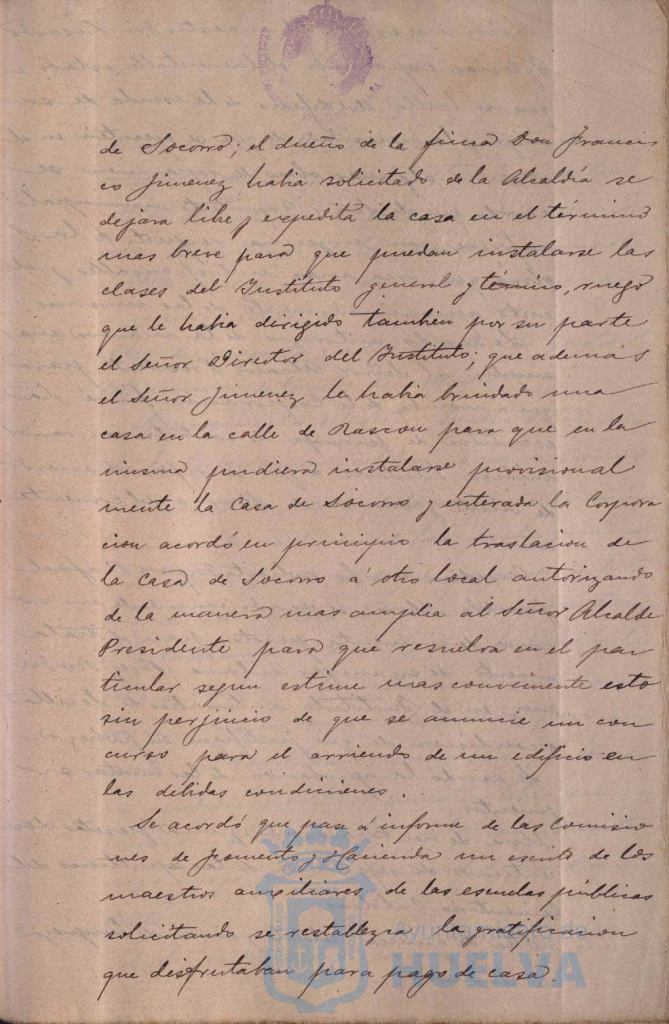 de Socorro; el dueño de la finca Don Francis
co Jimenez habia solicitado de la Alcaldía se
dejara libre y expedita la casa en el término
mas breve para que puedan instalarse las
clases del Instituto general y técnico, ruego
que le habia dirigido tambien por su parte
el Señor Director del Instituto; que además
el Señor Jimenez le habia brindado una
casa en la calle de Rascon para que en la
misma pudiera instalarse provisional
mente la Casa de Socorro y enterada la Corpora
cion acordó en principio la traslacion de
la Casa de Socorro á otro local autorizando
de la manera mas amplia al Señor Alcalde
Presidente para que resuelva en el par
ticular segun estime mas conveniente esto
sin perjuicio de que se anuncie un con
curso para el arriendo de un edificio en
las debidas condiciones.
Se acordó que pase á informe de las Comisio
nes de Fomento y Hacienda un escrito de los
maestros auxiliares de las escuelas públicas
solicitando se restablezca la gratificacion
que disfrutaban para pago de casa.
HUELVA